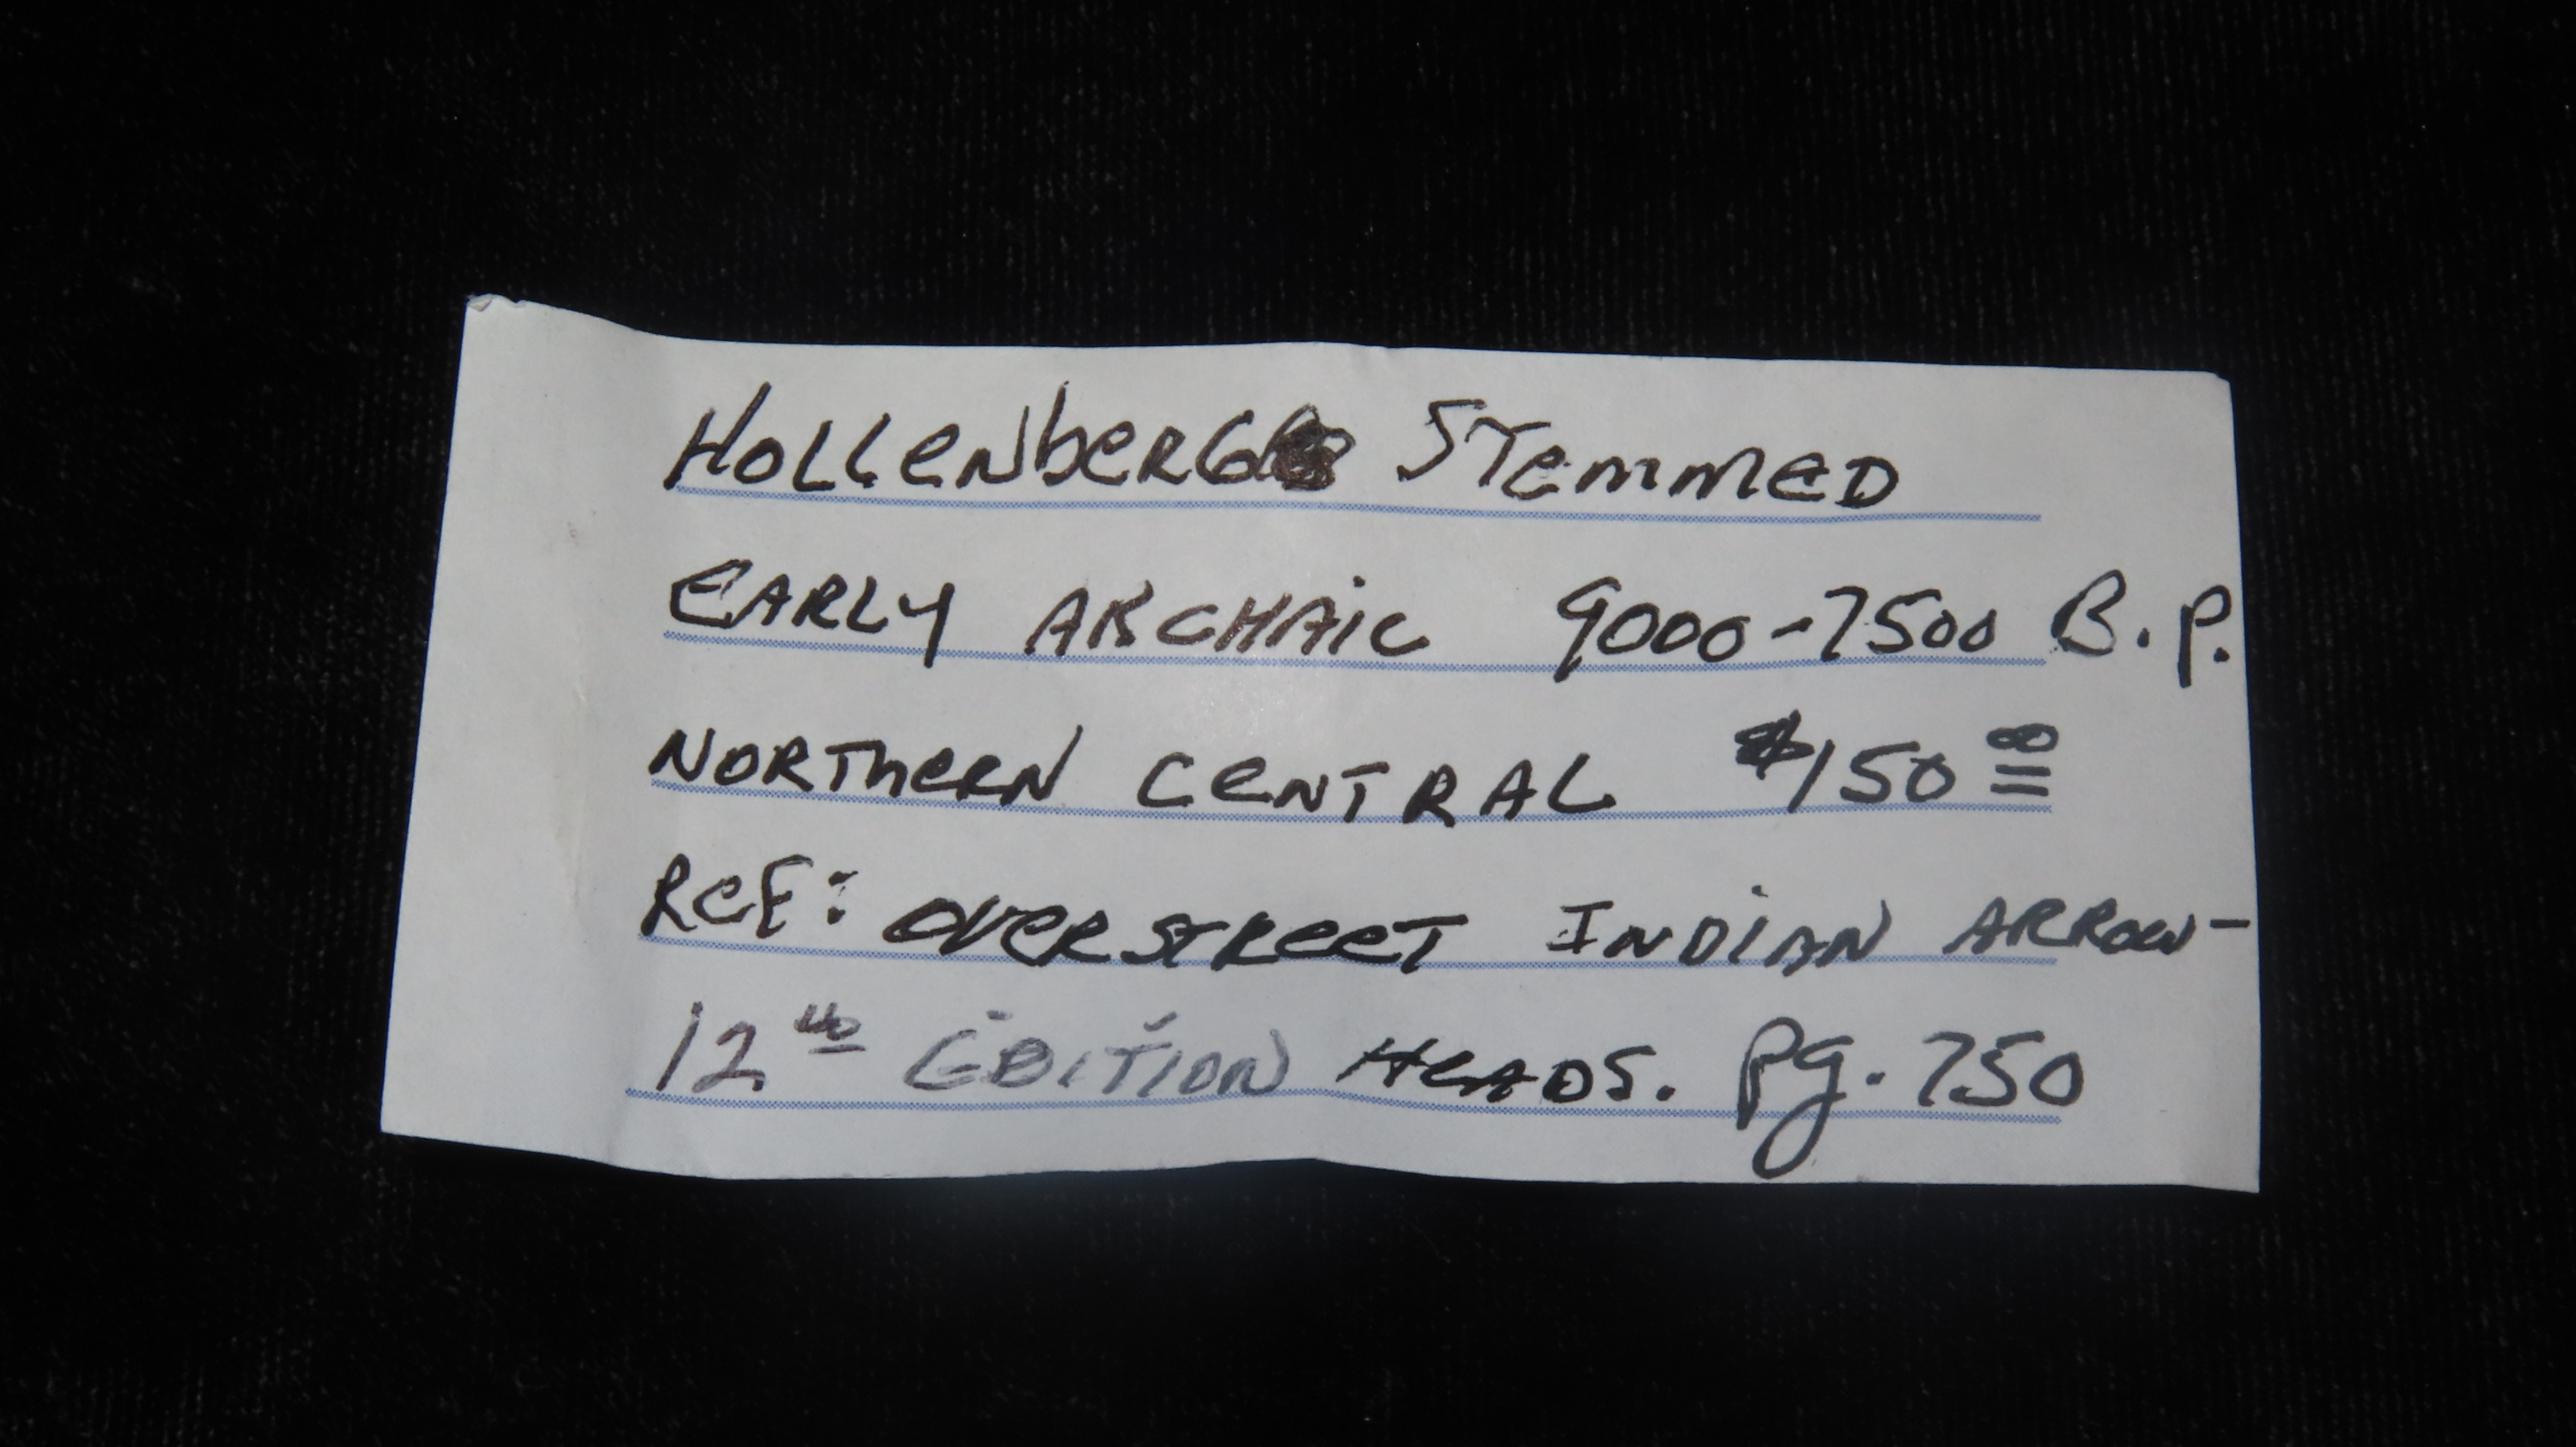 HOLLENBERG STEMMED
EARLY ARCHAIC 9000-7500 B.P.
NORTHERN CENTRAL $150 00
REF: OVERSTREET INDIAN ARROW-
12th EDITION HEADS. Pg. 750